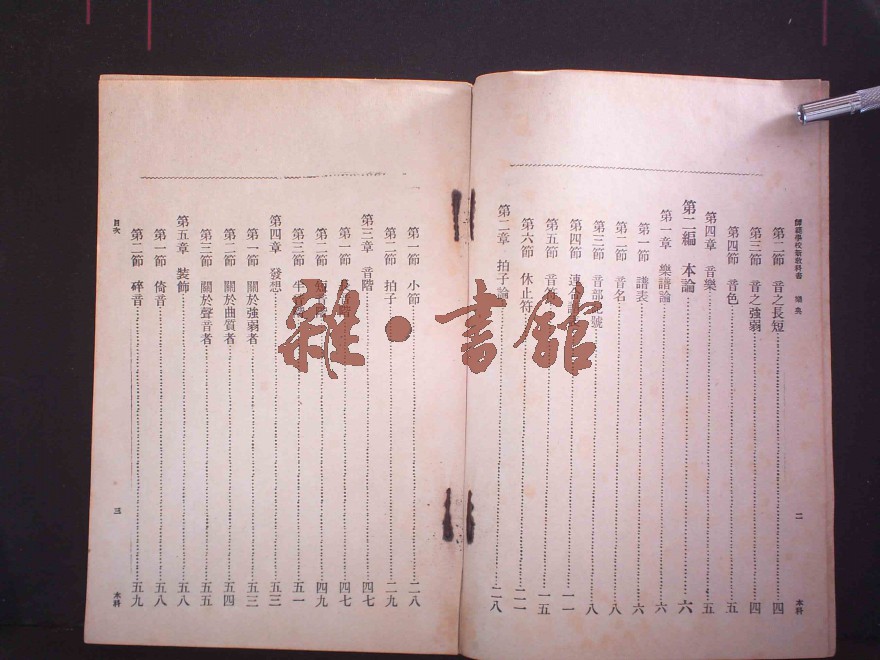 師範學校新教科書 樂典
第二節 音之長短 四
第三節 音之強弱 四
第四節 音色 五
第四章 音樂 五
第二編 本論 六
第一章 樂譜論 六
第一節 譜表 六
第二節 音名 八
第三節 音部記號 八
第四節 連 一一
第五節 音符 一五
第六節 休止符 二一
第二章 拍子論 二八
二
本科
第一節 小節 二八
第二節 拍子 二九
第三章 音階 四七
第一節 四七
第二節 短 四九
第三節 半音 五一
第四章 發想 五三
第一節 關於強弱者 五三
第二節 關於曲質者 五四
第三節 關於聲音者 五五
第五章 裝飾 五八
第一節 倚音 五八
第二節 碎音 五九
目次
三
本科
雜·書館